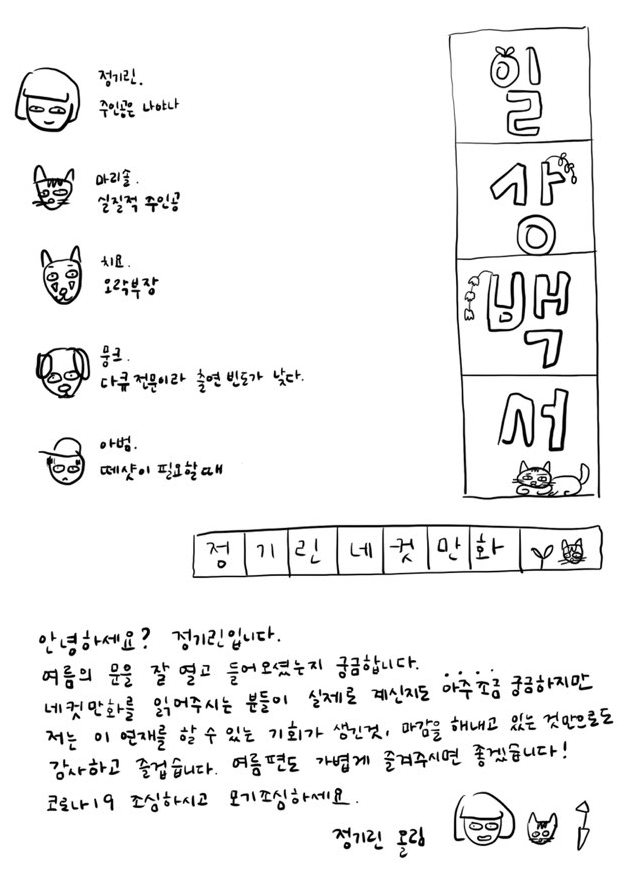 정기린.
주인공은 나야나
마리솔.
실질적 주인공
치요.
오락부장
뭉크.
다큐전문이라 출연 빈도가 낮다.
아범.
떼샷이 필요할때
일
상
백
서
정기린네컷만화
안녕하세요? 정기린입니다.
여름의 문을 잘 열고 들어오셨는지 궁금합니다.
네컷만화를 읽어주시는 분들이 실제로 계신지도 아주조금 궁금하지만
저는 이 연재를 할 수 있는 기회가 생긴것, 마감을 해내고 있는 것만으로도
감사하고 즐겁습니다. 여름편도 가볍게 즐겨주시면 좋겠습니다!
코로나19 조심하시고 모기조심하세요.
정기린 올림